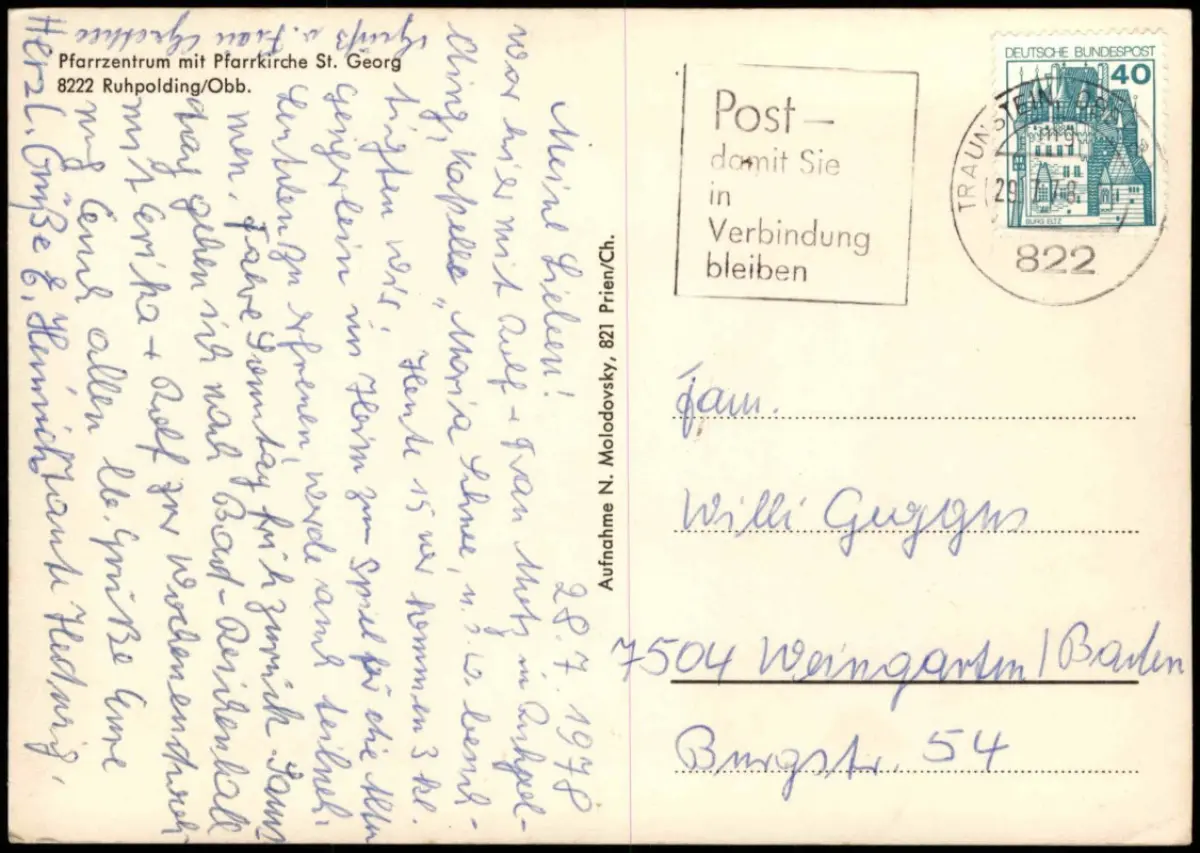 Pfarrzentrum mit Pfarrkirche St. Georg
8222 Ruhpolding/Obb.
28.7.1978
Meine Lieben!
War hier mit Rolf + Frau Metz in Ruhpol-
ding, Kapelle "Maria Schnee, u.s.w. besich-
tigten wir! Heute 15 Uhr kommen 3 kl.
Geigerlein ins Heim zum Spiel für die alten
Leutchen zu erfreuen, werde auch teilneh-
men. Fahre Sonntag früh zurück. Sams-
tag gehen ich nach Bad-Reichenhall
mit Erika + Rolf zur Wochenendtreff
und Euch allen lb. Grüße Eure
Tante Hedwig,
Herzl. Grüße E. Heinrich
Gruß v. Frau
Aufnahme N. Molodovsky, 821 Prien/Ch.
Post –
damit Sie
in
Verbindung
bleiben
DEUTSCHE BUNDESPOST
40
BURG ELTZ
TRAUNSTEIN
29.7.78
822
Fam.
Willi Guggus
7504 Weingarten/Baden
Burgstr. 54